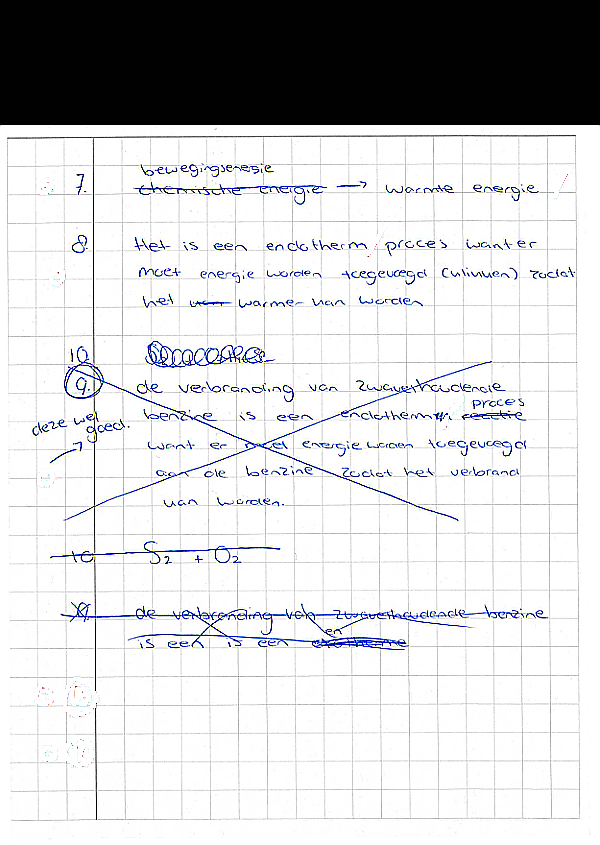 bewegingsenegie
7. chemische energie → warmte energie
8. Het is een endotherm proces want er
moet energie worden toegevoegd (vlinven) zodat
het warmer van worden
10.
9. de verbranding van zwavelhoudende
proces
benzine is een endotherm reactie
deze wel goed. →
want er moet energie woren toegevoegd
aan de benzine zodat het verbrand
van worden.
10 S2 + O2
9. de verbranding van zwavelhoudende benzine
en
is een is een exotherme